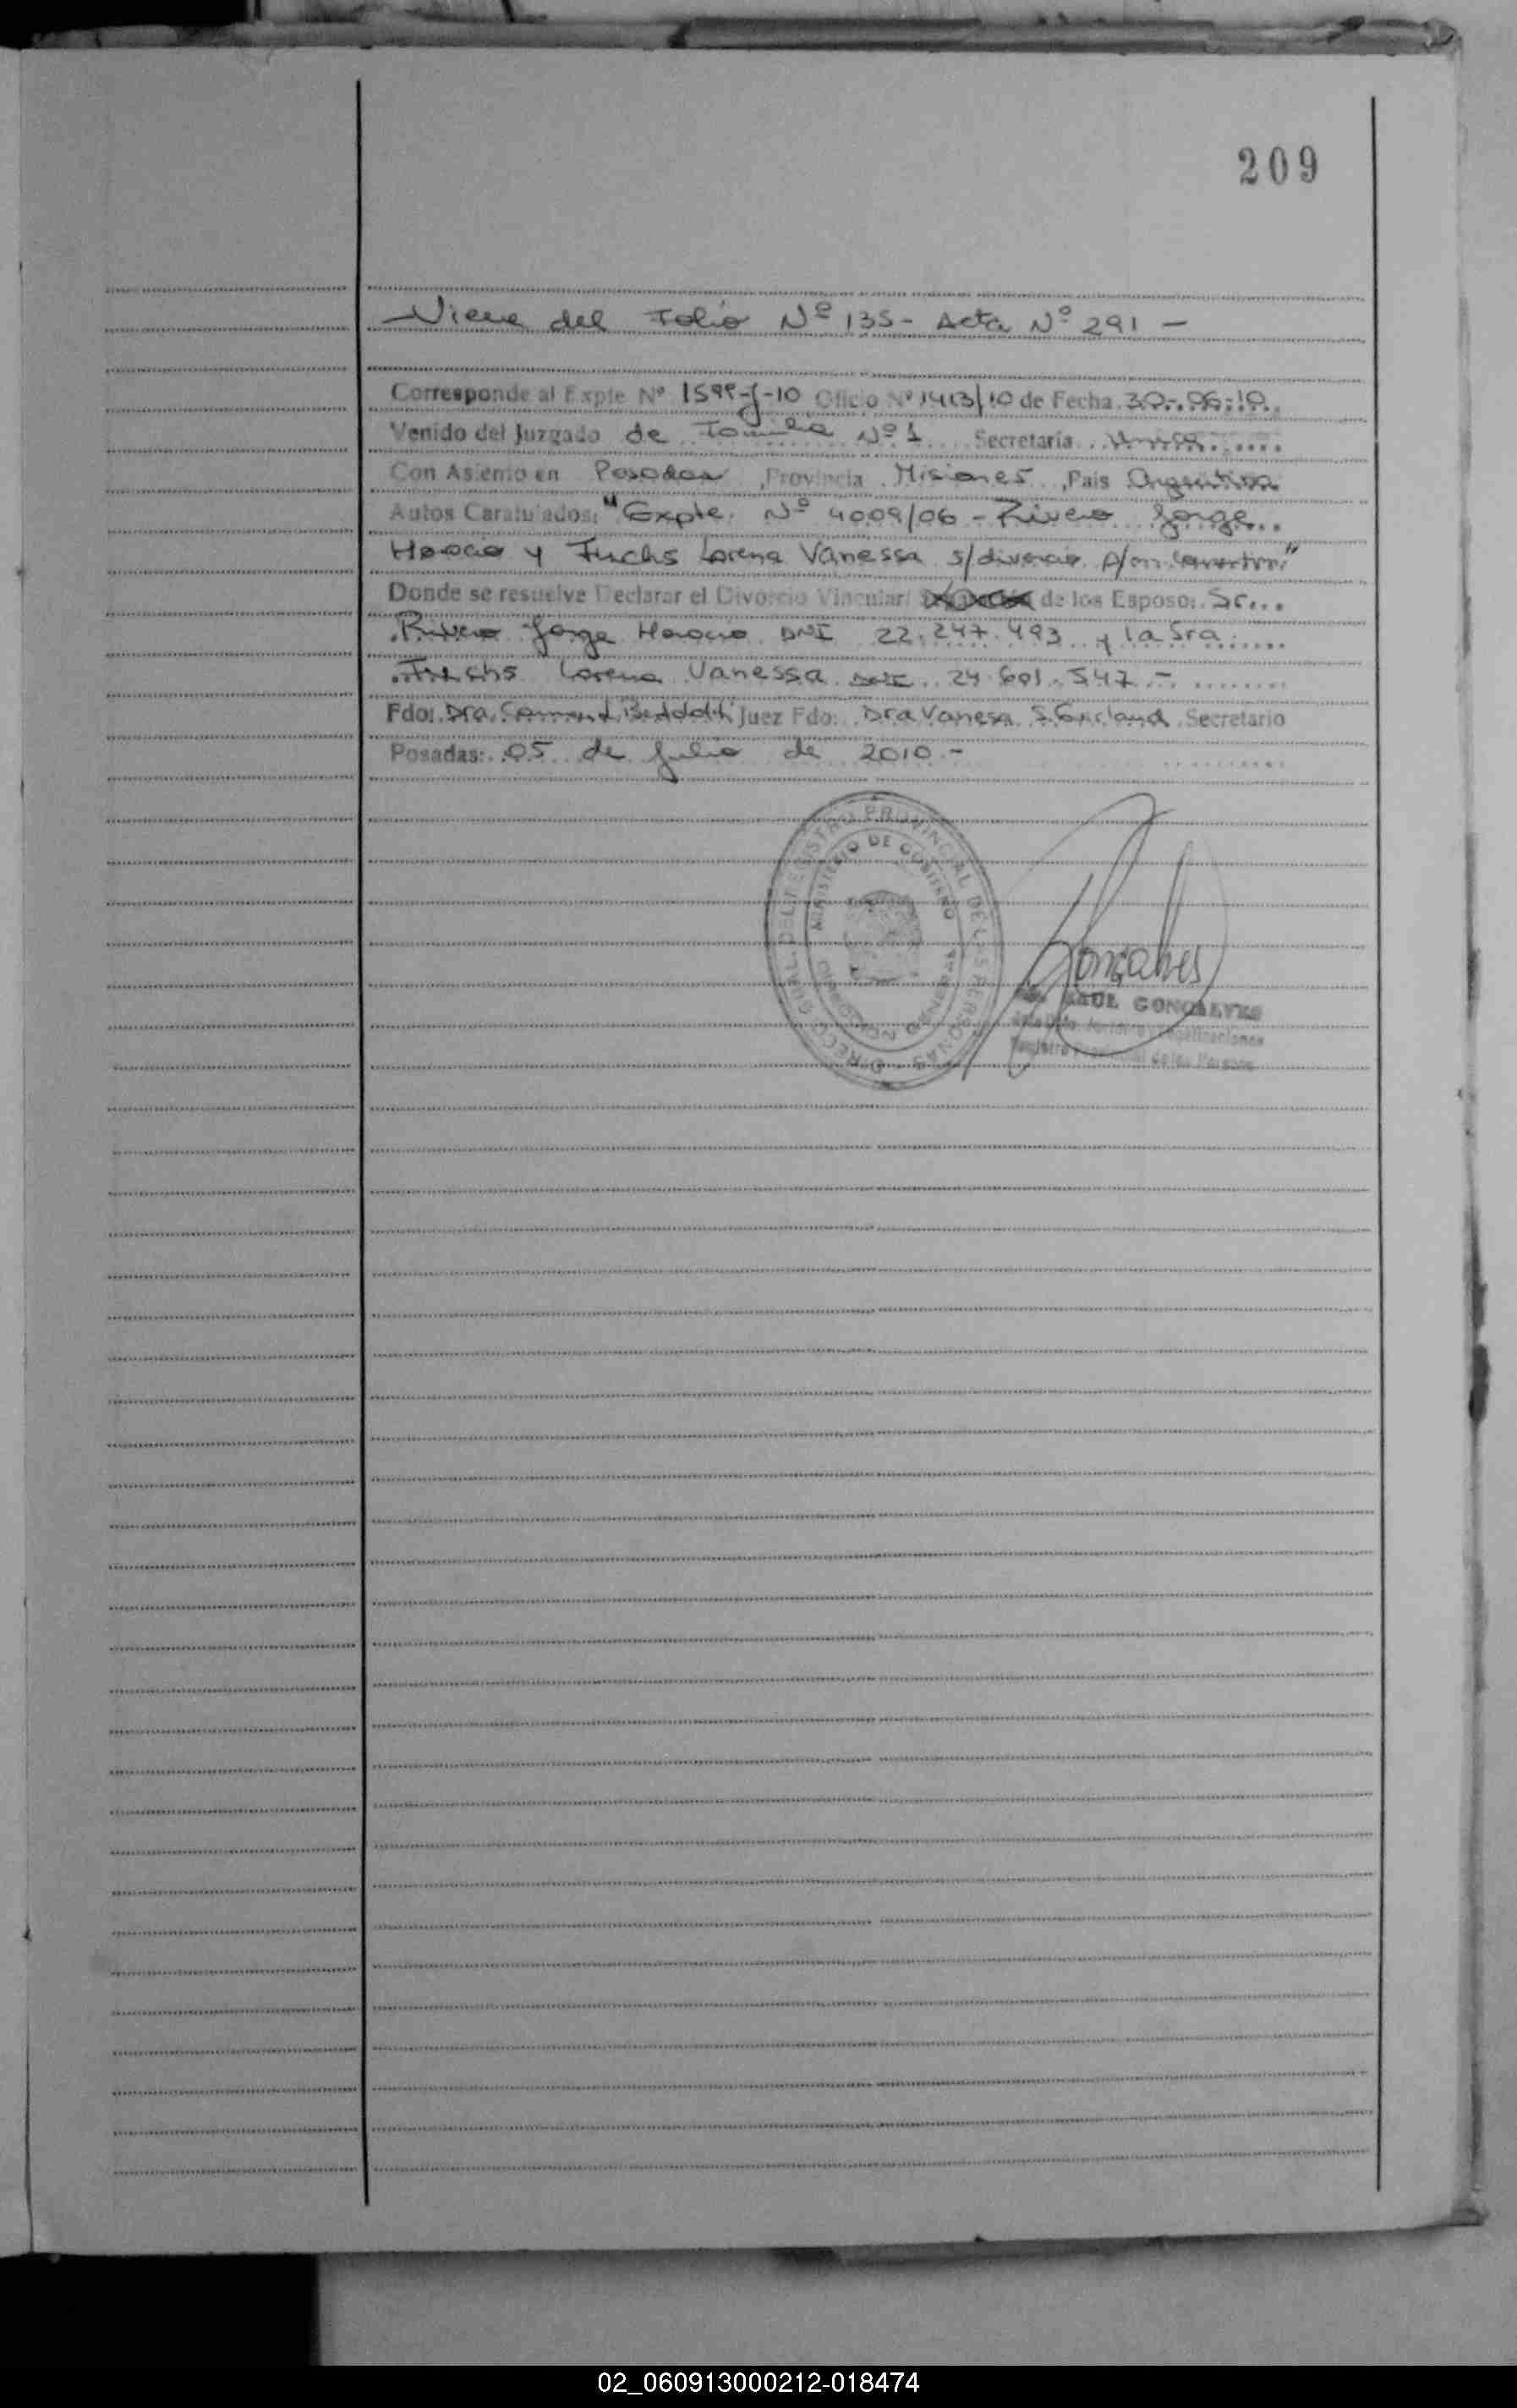 209
Viene del Folio Nº 135- Acta Nº 291 -
Corresponde al Expte Nº 1599-J-10 Oficio Nº 1413/10 de Fecha 30-06-10
Venido del Juzgado de Familia Nº 1 Secretaría Unica
Con Asiento en Posadas, Provincia Misiones, País Argentina
Autos Caratulados: "Expte. Nº 4009/06 - Rivero Jorge
Horacio y Fuchs Lorena Vanessa s/divorcio p/
Donde se resuelve Declarar el Divorcio Vincular/ de los Esposo: Sr...
Rivero Jorge Horacio DNI 22.247.493 y la Sra
Fuchs Lorena Vanessa DNI 24.601.547 -
Fdo: Dra. Juez Fdo: Dra Vanesa S. Secretario
Posadas: 05 de Julio de 2010 -
DIRECC. GRAL. DEL REGISTRO PROVINCIAL DE LAS PERSONAS
MINISTERIO DE GOBIERNO
Gonçalves
RAUL GONÇALVES
Registro Provincial de las Personas
02_060913000212-018474